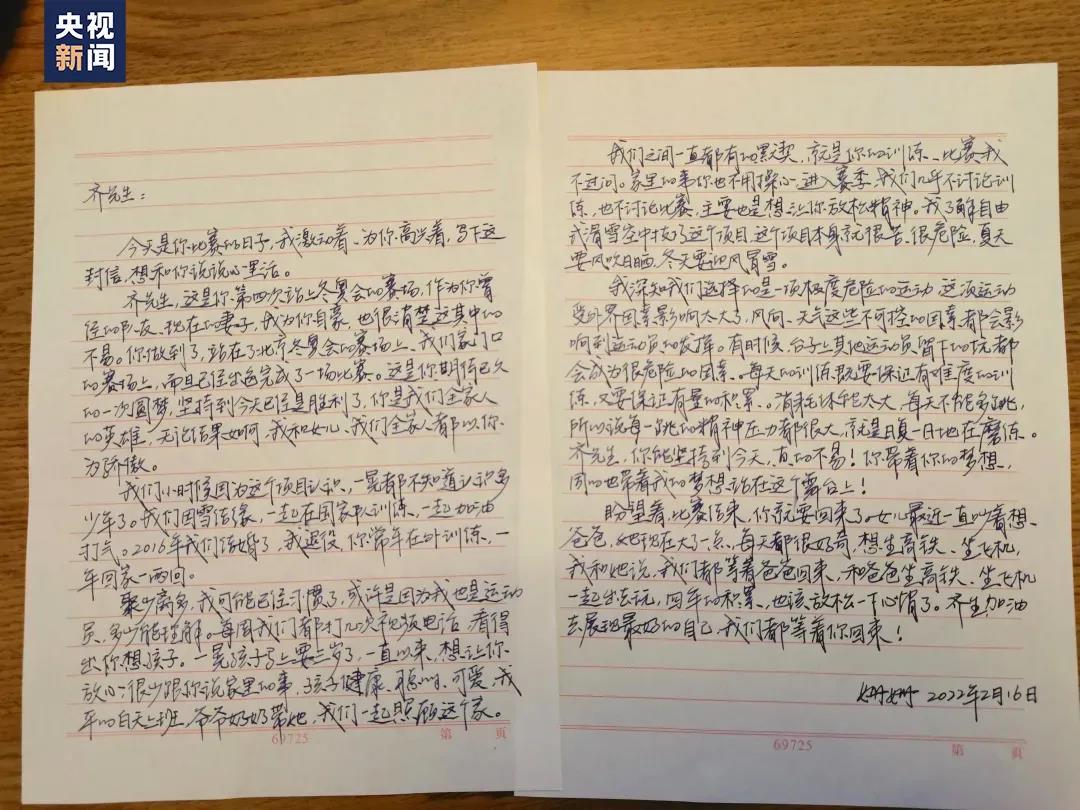 央视
新闻
齐先生：
今天是你比赛的日子，我激动着、为你高兴着，写下这
封信，想和你说说心里话。
齐先生，这是你第四次站上冬奥会的赛场，作为你曾
经的队友、现在的妻子，我为你自豪，也很清楚这其中的
不易。你做到了，站在了北京冬奥会的赛场上、我们家门口
的赛场上，而且已经出色完成了一场比赛。这是你期待已久
的一次圆梦，坚持到今天已经是胜利了，你是我们全家人
的英雄，无论结果如何，我和女儿、我们全家人都以你
为骄傲。
我们小时候因为这个项目认识，一晃都不知道认识多
少年了。我们因雪结缘，一起在国家队训练、一起加油
打气。2016年我们结婚了，我退役，你常年在外训练，一
年回家一两回。
聚少离多，我可能已经习惯了，或许是因为我也是运动
员，多少能理解。每周我们都打几次视频电话，看得
出你想孩子。一晃孩子马上要三岁了，一直以来，想让你
放心，很少跟你说家里的事，孩子健康、聪明、可爱，我
平时白天上班，爷爷奶奶带她，我们一起照顾这个家。
69725
第 页
我们之间一直都有的默契，就是你的训练、比赛我
不过问。家里的事你也不用操心，进入赛季，我们几乎不讨论训
练，也不讨论比赛，主要也是想让你放松精神。我了解自由
式滑雪空中技巧这个项目，这个项目本身就很苦、很危险，夏天
要风吹日晒，冬天要迎风冒雪。
我深知我们选择的是一项极度危险的运动，这项运动
受外界因素影响太大了，风向、天气这些不可控的因素都会影
响到运动员的发挥。有时候，台子上其他运动员留下的坑都
会成为很危险的因素。每天的训练既要保证有难度的训
练，又要保证有量的积累。消耗体能太大，每天不能多跳，
所以说每一跳的精神压力都很大，就是日复一日地在磨练。
齐先生，你能坚持到今天，真的不易！你带着你的梦想，
同时也带着我的梦想站在这个雪台上！
盼望着，比赛结束，你就要回来了。女儿最近一直吵着想
爸爸，她现在大了一点，每天都很好奇，想坐高铁、坐飞机，
我和她说，我们都等着爸爸回来，和爸爸坐高铁、坐飞机
一起出去玩，四年的积累，也该放松一下心情了。齐先生加油
去展现最好的自己，我们都等着你回来！
2022年2月16日
69725
第 页